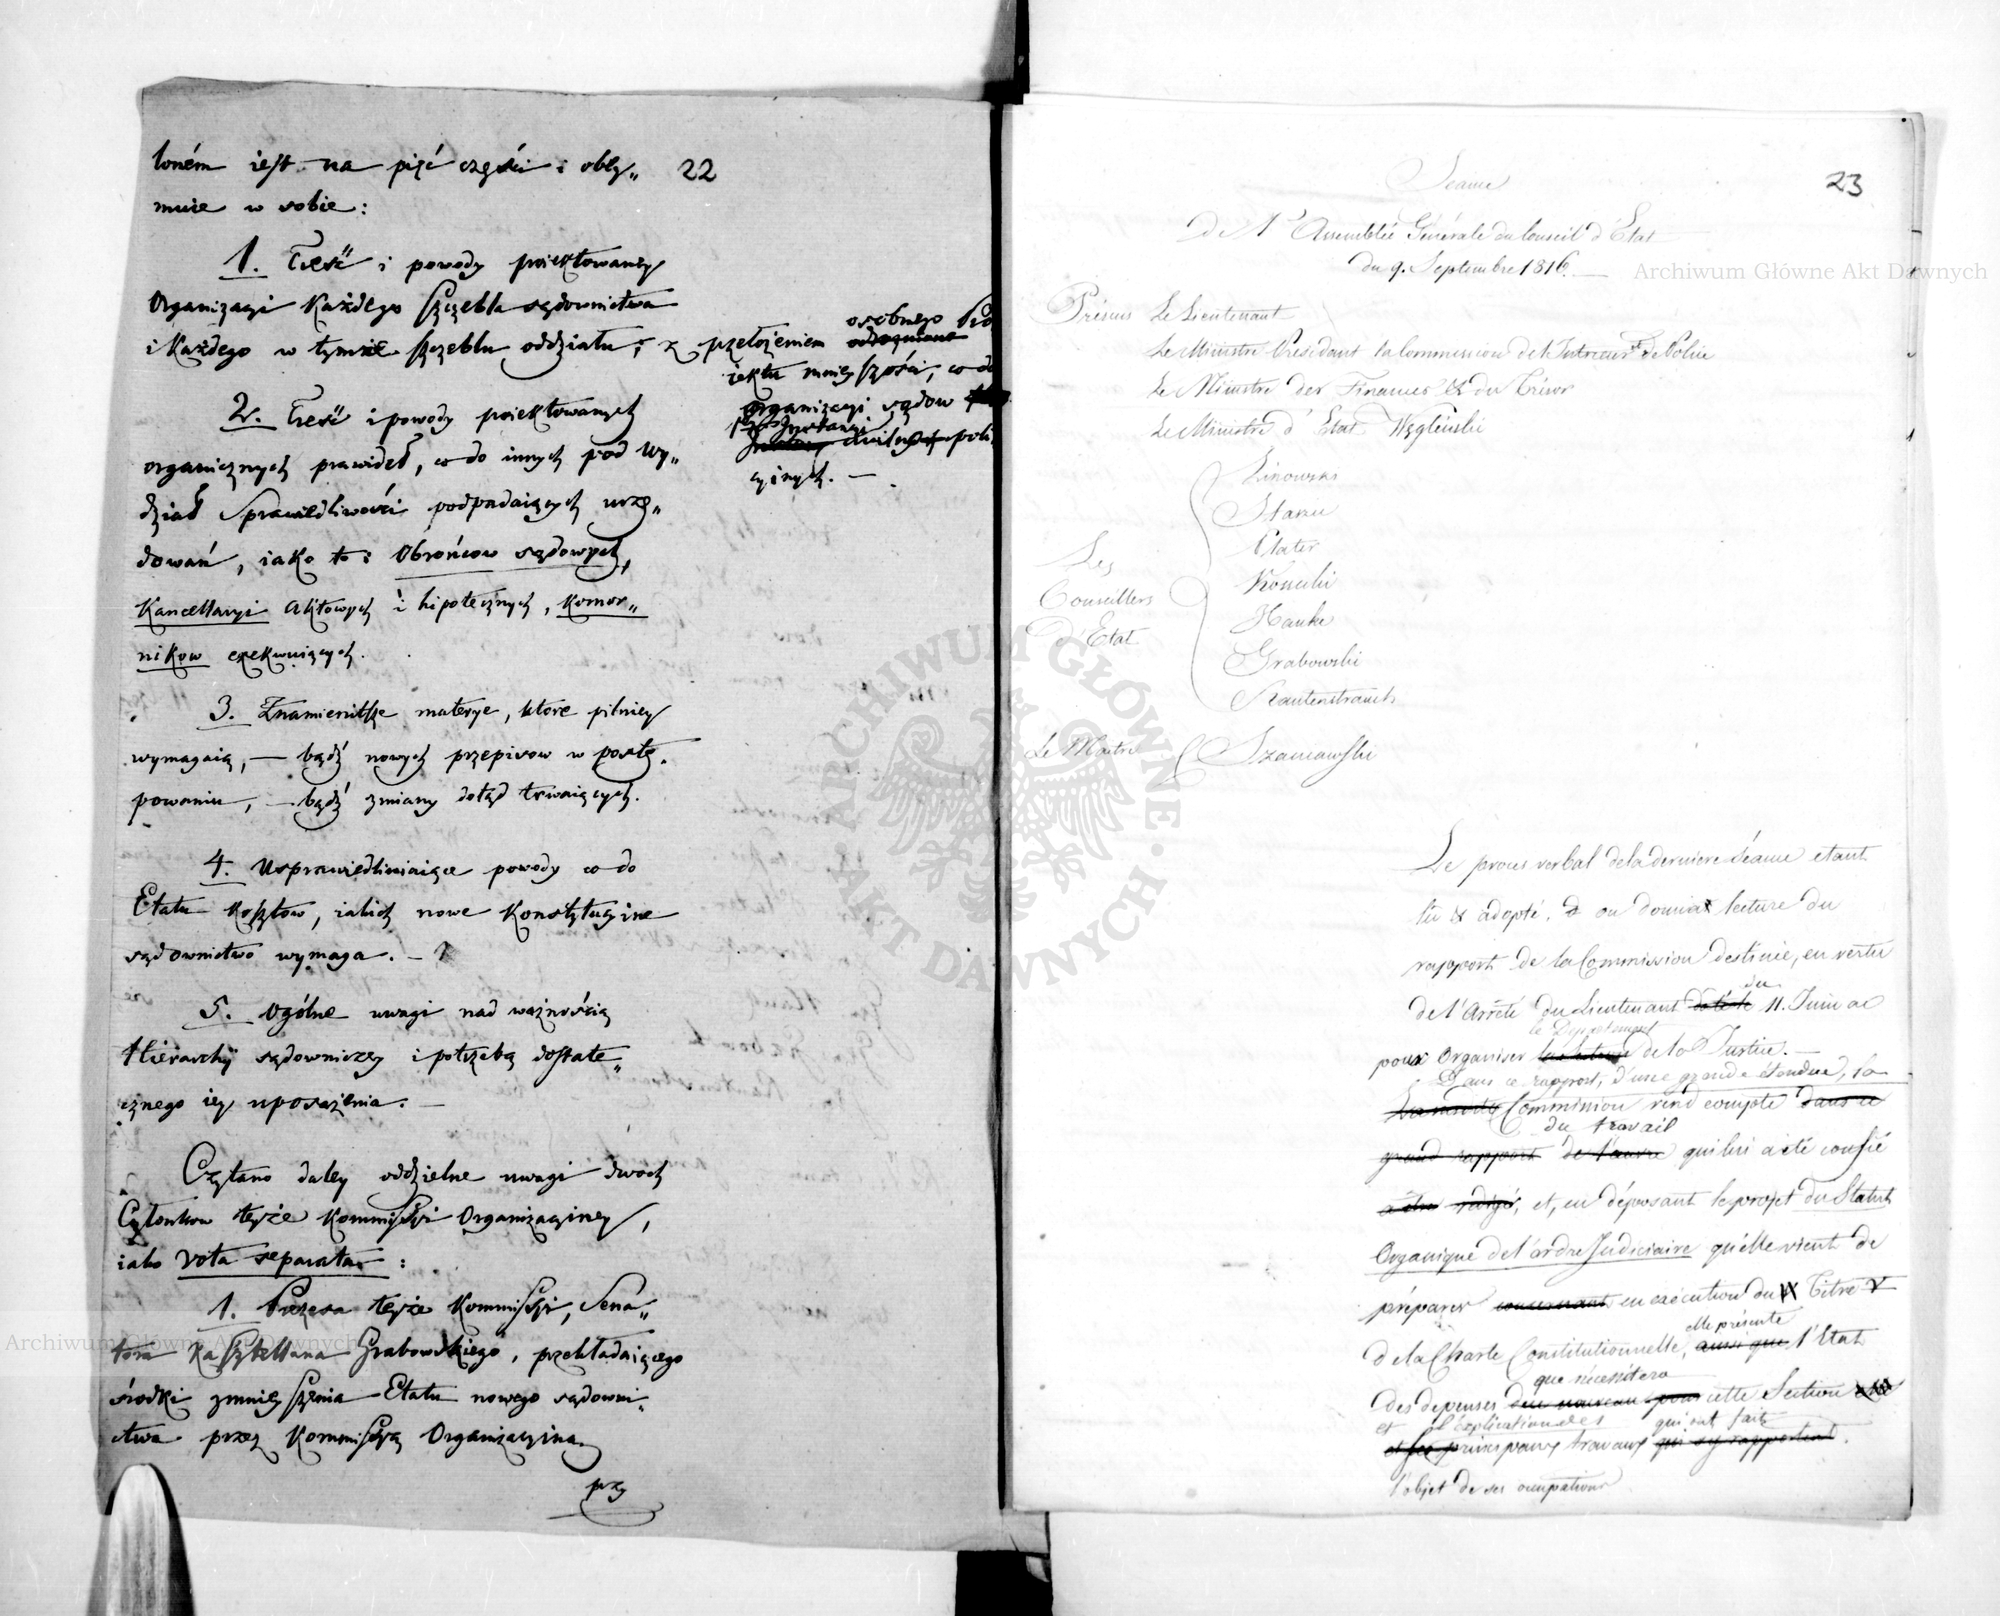 łoném iest na pięć części i obey„
22
muie w sobie:
1. Treść i powody proiektowaney
Organizacyi Każdego Szczebla sądownictwa
i Każdego w tymże szczeblu oddziału; z przełożeniem osobnego Pro
odrazniane
iektu mniey szości, co do
organizacyi sądow
cywilnych poli
cyinych. —
2. Treść i powody proiektowanych
organicznych prawideł, co do innych pod Wy„
dział Sprawiedliwości podpadaiących urzę„
dowań, iako to: Obrońcow sądowych,
Kancellaryi Aktowych i hipotecznych, Komor„
nikow exekwuiących.
3. Znamienitsze materye, które pilniey
wymagaią, — bądź nowych przepisow w postę.
powaniu, — bądź zmiany dotąd trwaiących.
4. Usprawiedliwiaiące powody co do
Etatu Kosztow, iakich nowe Konstytucyine
sądownictwo wymaga. —
5. Ogólne uwagi nad ważnością
Hierarchij sądowniczey i potrzebą dostate„
cznego iey uposażenia. —
Czytano daley oddzielne uwagi dwoch
Członkow teyże Kommissyi Organizacyiney,
iako Vota separata:
1. Prezesa teyże Kommissyi, Sena„
tora Kasztellana Grabowskiego, przekładaiącego
środki zmnieyszenia Etatu nowego sądowni„
ctwa przez Kommissyą Organizacyiną
przy
23
Séance
De l'Assemblée Générale du Conseil d'État
du 9. Septembre 1816. —
Présens Le Lieutenant
Le Ministre Président la Commission de l'Interieur et de Police
Le Ministre des Finances & du Trésor
Le Ministre d'État Węgleński
Les Conseillers d'État
Linowski
Staszic
Plater
Kossecki
Hauke
Grabowski
Rautenstrauch
Le Maitre Szaniawski
Le procès verbal de la derniere séance etant
lu & adopté, on donna lecture du
rapport de la Commission destinée, en vertu
de l'Arrêté du Lieutenant du 11. Juin ac
le Departement
pour Organiser de la Justice. —
Dans ce rapport, d'une grande étendue, la
Commission rend compte dans ce
du travail
grand rapport de l'œuvre qui lui a été confié
rédiger, et, en déposant le projet du Statut
Organique de l'ordre Judiciaire qu'elle vient de
préparer concernant en exécution du Titre V
elle présente
de la Charte Constitutionnelle, ainsi que l'Etat
que nécéssitera
des depenses pour cette Section
et l'explication des qui ont fait
principaux travaux qui s'y rapportent.
l'objet de ses occupations
Archiwum Główne Akt Dawnych
ARCHIWUM GŁÓWNE · AKT DAWNYCH ·
Archiwum Główne Akt Dawnych